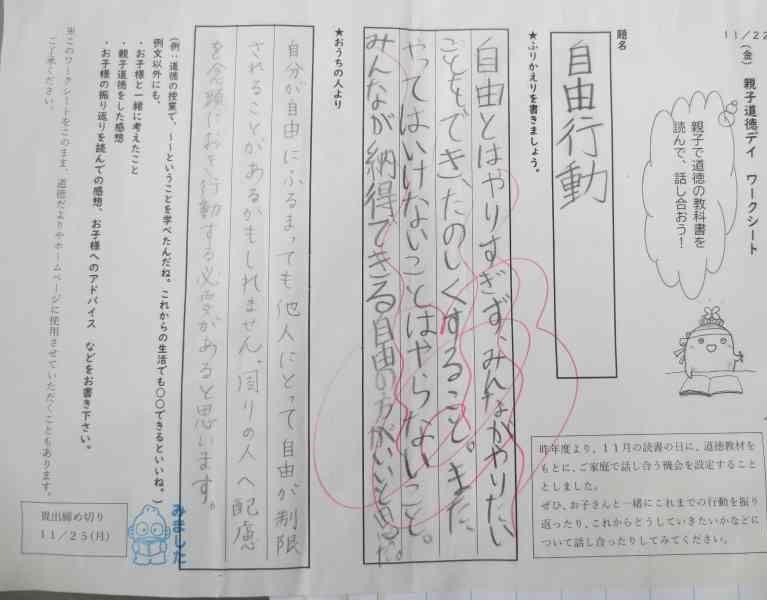 11/22
(金) 親子道徳デイ ワークシート
親子で道徳の教科書を
読んで、話し合おう！
昨年度より、11月の読書の日に、道徳教材を
もとに、ご家庭で話し合う機会を設定すること
としました。
ぜひ、お子さんと一緒にこれまでの行動を振り
返ったり、これからどうしていきたいかなどに
ついて話し合ったりしてみてください。
題名
自由行動
★ふりかえりを書きましょう。
自由とはやりすぎず、みんながやりたい
ことをできたのしくすること。また、
やってはいけないことはやらないこと。
みんなが納得できる自由の方がいいと思った。
★おうちの人より
自分が自由にふるまっても他人にとって自由が制限
されることがあるかもしれません。周りの人へ配慮
を念頭におき行動する必要があると思います。
(例：道徳の授業で、～～ということを学べたんだね。これからの生活でも○○できるといいね。)
例文以外にも、
・お子様と一緒に考えたこと
・親子道徳をした感想
・お子様の振り返りを読んでの感想、お子様へのアドバイス などをお書き下さい。
※このワークシートをこのまま、道徳だよりやホームページに使用させていただくこともあります。
ご了承ください。
提出締め切り
11/25(月)
みました